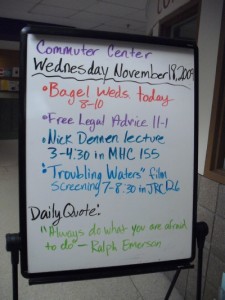 Commuter Center
Wednesday November 18, 2009
• Bagel Weds. today
8-10
• Free Legal Advice 11-1
• Nick Dennen lecture
3-4:30 in MHC 155
• "Troubling Waters" film
screening 7-8:30 in JRC
Daily Quote:
"Always do what you are afraid
to do" – Ralph Emerson